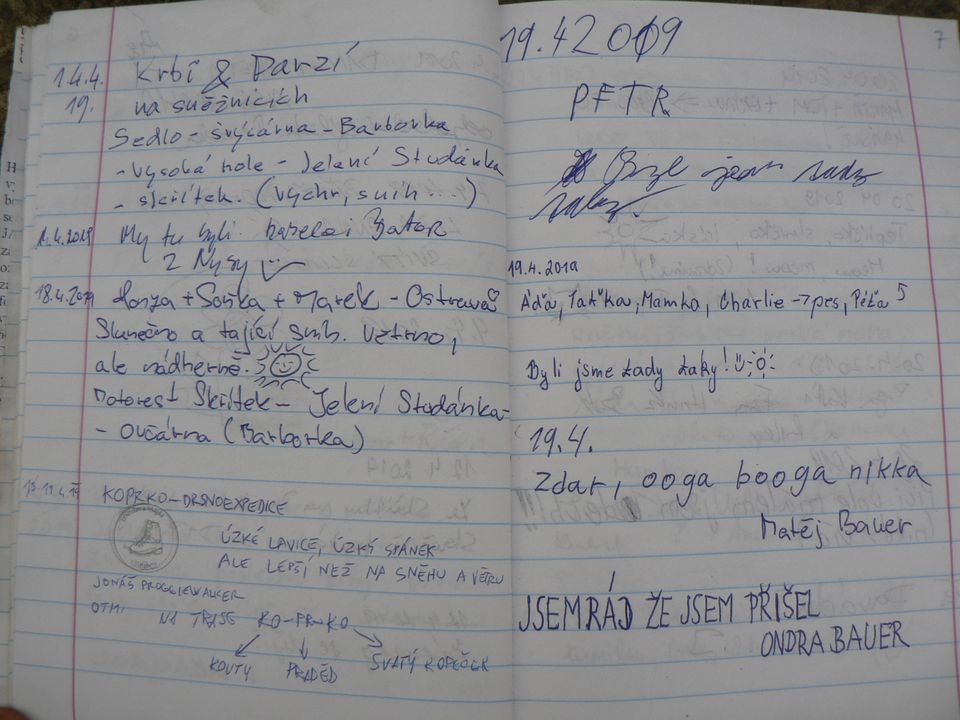 14.4. Krbí & Darzí
19. na sněžnicích
Sedlo - švýcárna - Barborka
- vysoká hole - Jelení Studánka
- skřítek. (vychr, sníh ...)
1.4.2019 My tu byli.
z Nysy
18.4.2019 Honza + Soňka + Marek - Ostrava
Slunečno a tající sníh. Větrno,
ale nádherně.
Motorest Skřítek - Jelení Studánka -
- Ovčárna (Barborka)
KOPRKO - DRSNOEXPEDICE
ÚZKÉ LAVICE, ÚZKÝ SPÁNEK
ALE LEPŠÍ NEŽ NA SNĚHU A VĚTRU
JONÁŠ
NA TRASE KO-PR-KO
KOUTY PRADĚD SVATÝ KOPEČEK
7
19.4 2019
PFTR
jsem
19.4.2019
Áďa, Taťka, Mamka, Charlie → pes, Péťa
Byli jsme tady taky!
19.4.
Zdar, ooga booga nikka
Matěj Bauer
JSEM RÁD ŽE JSEM PŘIŠEL
ONDRA BAUER